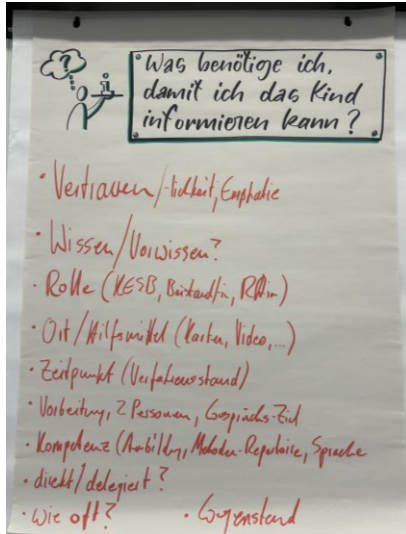 ?
i
Was benötige ich,
damit ich das Kind
informieren kann?
• Vertrauen/-lichkeit, Empathie
• Wissen/Vorwissen?
• Rolle (KESB, Beiständ/in, RAin)
• Ort/Hilfsmittel (Karten, Video, ...)
• Zeitpunkt (Verfahrensstand)
• Vorbereitung, 2 Personen, Gesprächs-Ziel
• Kompetenz (Ausbildung, Methoden-Repertoire, Sprache
• direkt/delegiert?
• Wie oft? • Gegenstand